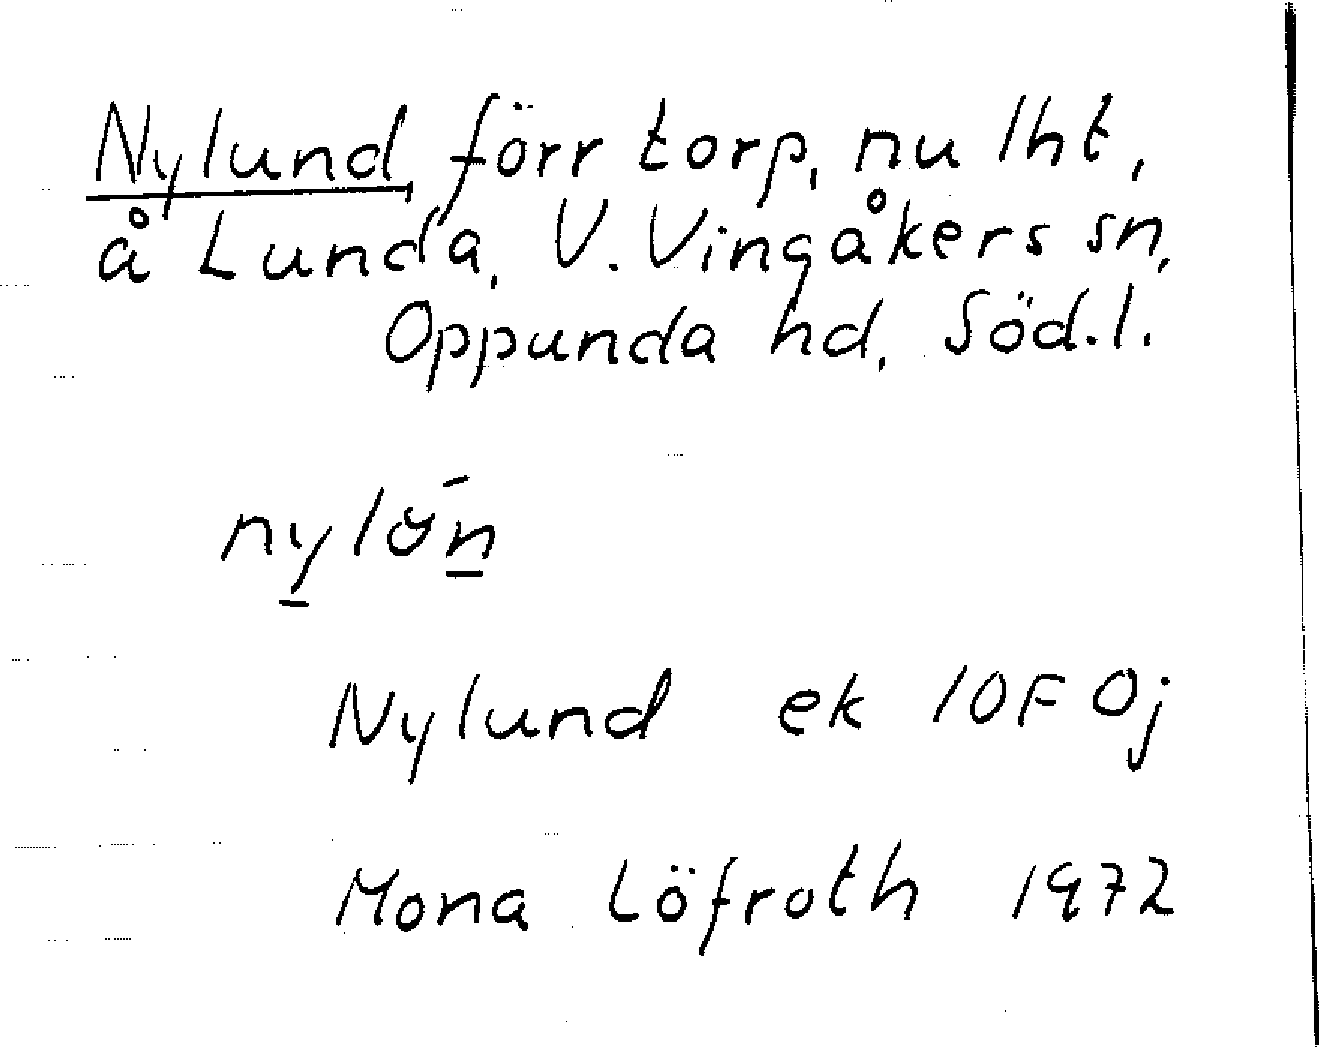 Nylund, förr torp, nu lht,
å Lunda, V. Vingåkers sn,
Oppunda hd, Söd.l.
Nylund ek 10F 0j
Mona Löfroth 1972